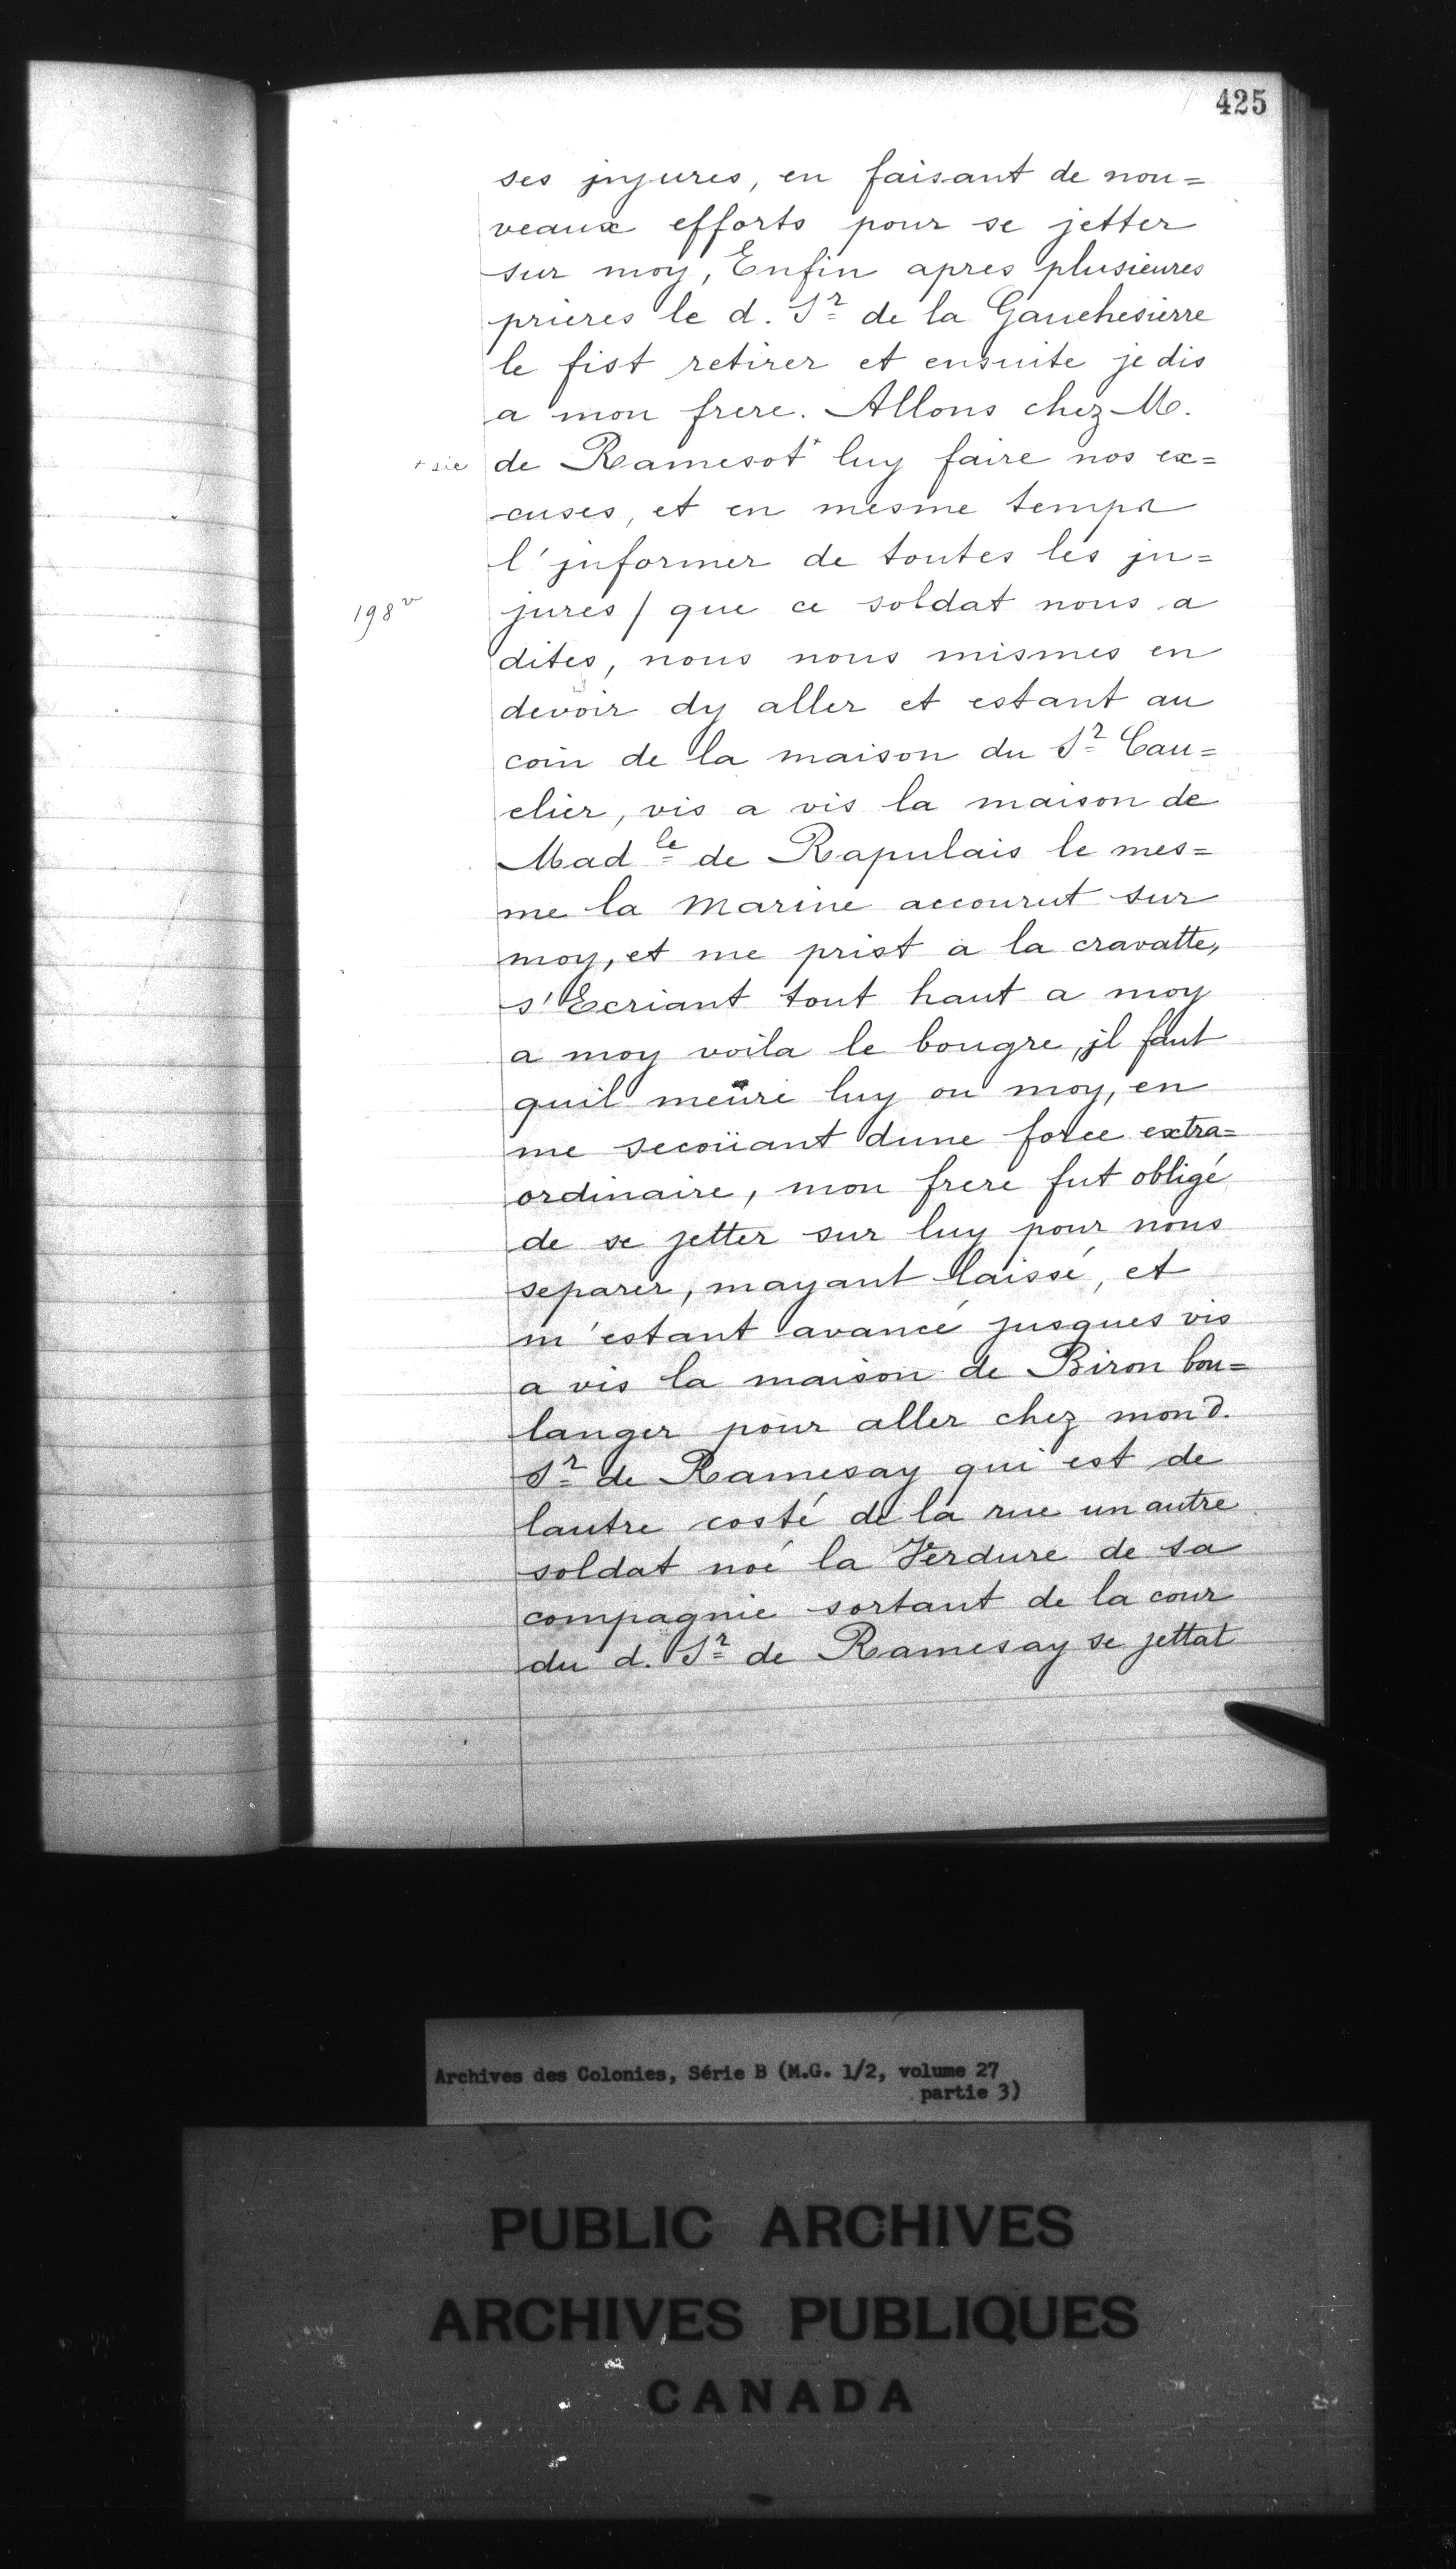 425
ses jnjures, en faisant de nou=
veaux efforts pour se jetter
sur moy, Enfin apres plusieures
prieres le d. Sr de la Gauchesierre
le fist retirer et ensuite je dis
a mon frere. Allons chez M.
+ sic de Ramesot+ luy faire nos ex=
cuses, et en mesme temps
l'jnformer de toutes les jn=
198v jures / que ce soldat nous a
dites, nous nous mismes en
devoir dy aller et estant au
coin de la maison du Sr Cau=
elier, vis a vis la maison de
Madle de Rapulais le mes=
me la Marine accourut sur
moy, et me prist a la cravatte,
s'Ecriant tout haut a moy
a moy voila le bougre, jl faut
quil meüre luy ou moy, en
me secoüant dune force extra=
ordinaire, mon frere fut obligé
de se jetter sur luy pour nous
separer, mayant laissé, et
m'estant avancé jusques vis
a vis la maison de Biron bou=
langer pour aller chez mond.
Sr de Ramesay qui est de
lautre costé de la rue un autre
soldat noé la Verdure de sa
compagnie sortant de la cour
du d. Sr de Ramesay se jettat
Archives des Colonies, Série B (M.G. 1/2, volume 27
partie 3)
PUBLIC ARCHIVES
ARCHIVES PUBLIQUES
CANADA